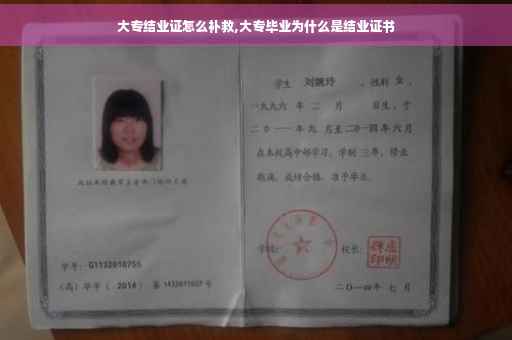 大专结业证怎么补救,大专毕业为什么是结业证书
学生 刘婉玲 ，性别 女 ，
一九九六 年 二 月 日生，于
二0一一 年 九 月至 二0一四 年 六 月
在本校高中部学习，学制 三年，修业
期满，成绩合格，准予毕业。
学校： 校长：
学号： G1132010755
（高）毕字（ 2014 ）第 1432011027 号
二〇一四年 七 月